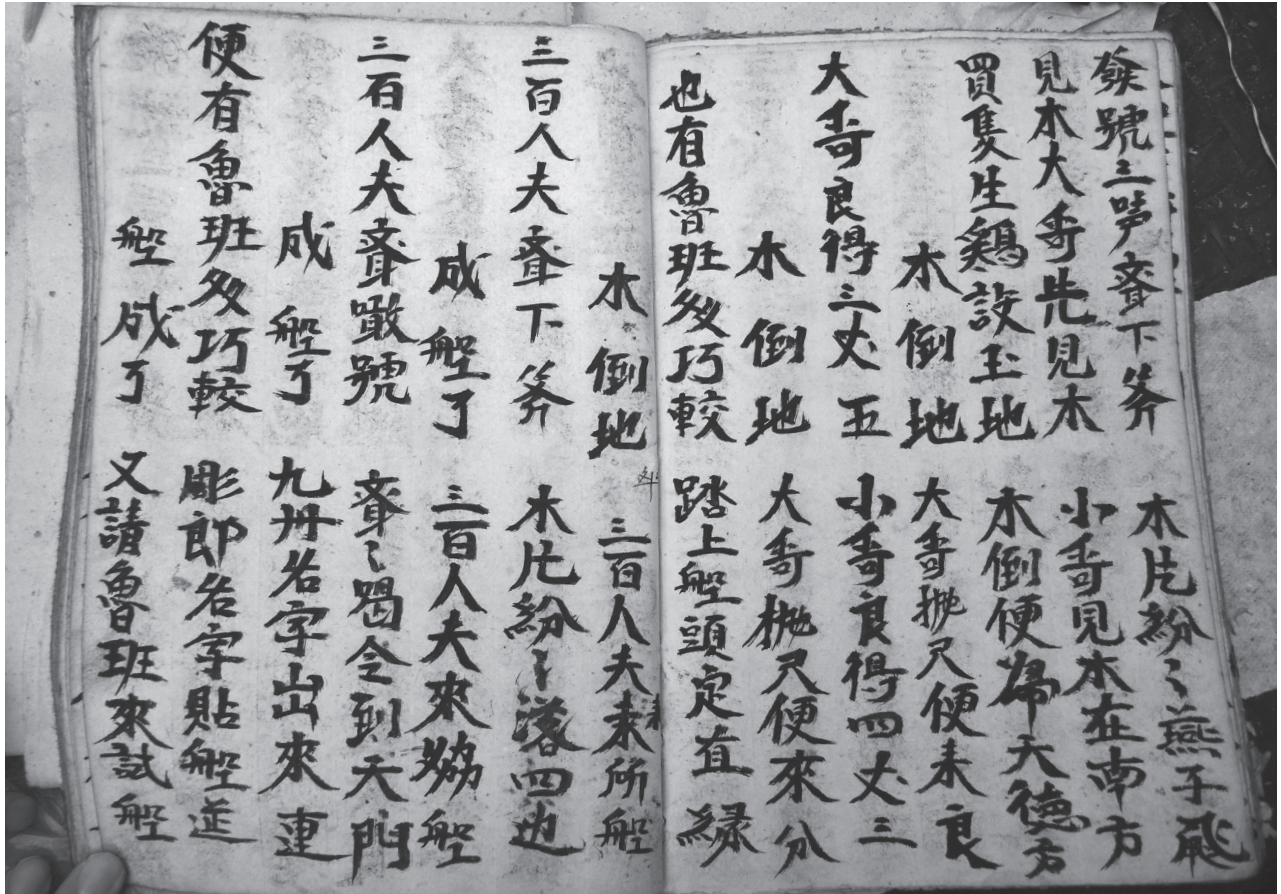 發號三声齊下斧　木片紛〻燕子飛
見木大哥先見木　小哥見木在南方
買隻生鷄設玉地　木倒便為天德方
木倒地　大哥抛尺便来良
大哥良得三丈五　小哥良得四丈三
木倒地　大哥抛尺便來分
也有魯班多巧較　踏上船頭定直緑
木倒地　三百人夫来所船
三百人夫齊下斧　木片紛〻落四边
成船了　三百人夫來船
三百人夫齊噉號　齊〻喝令到天門
成船了　九州名字出來連
便有魯班多巧較　彫郎名字貼船
船成了　又請魯班來試船